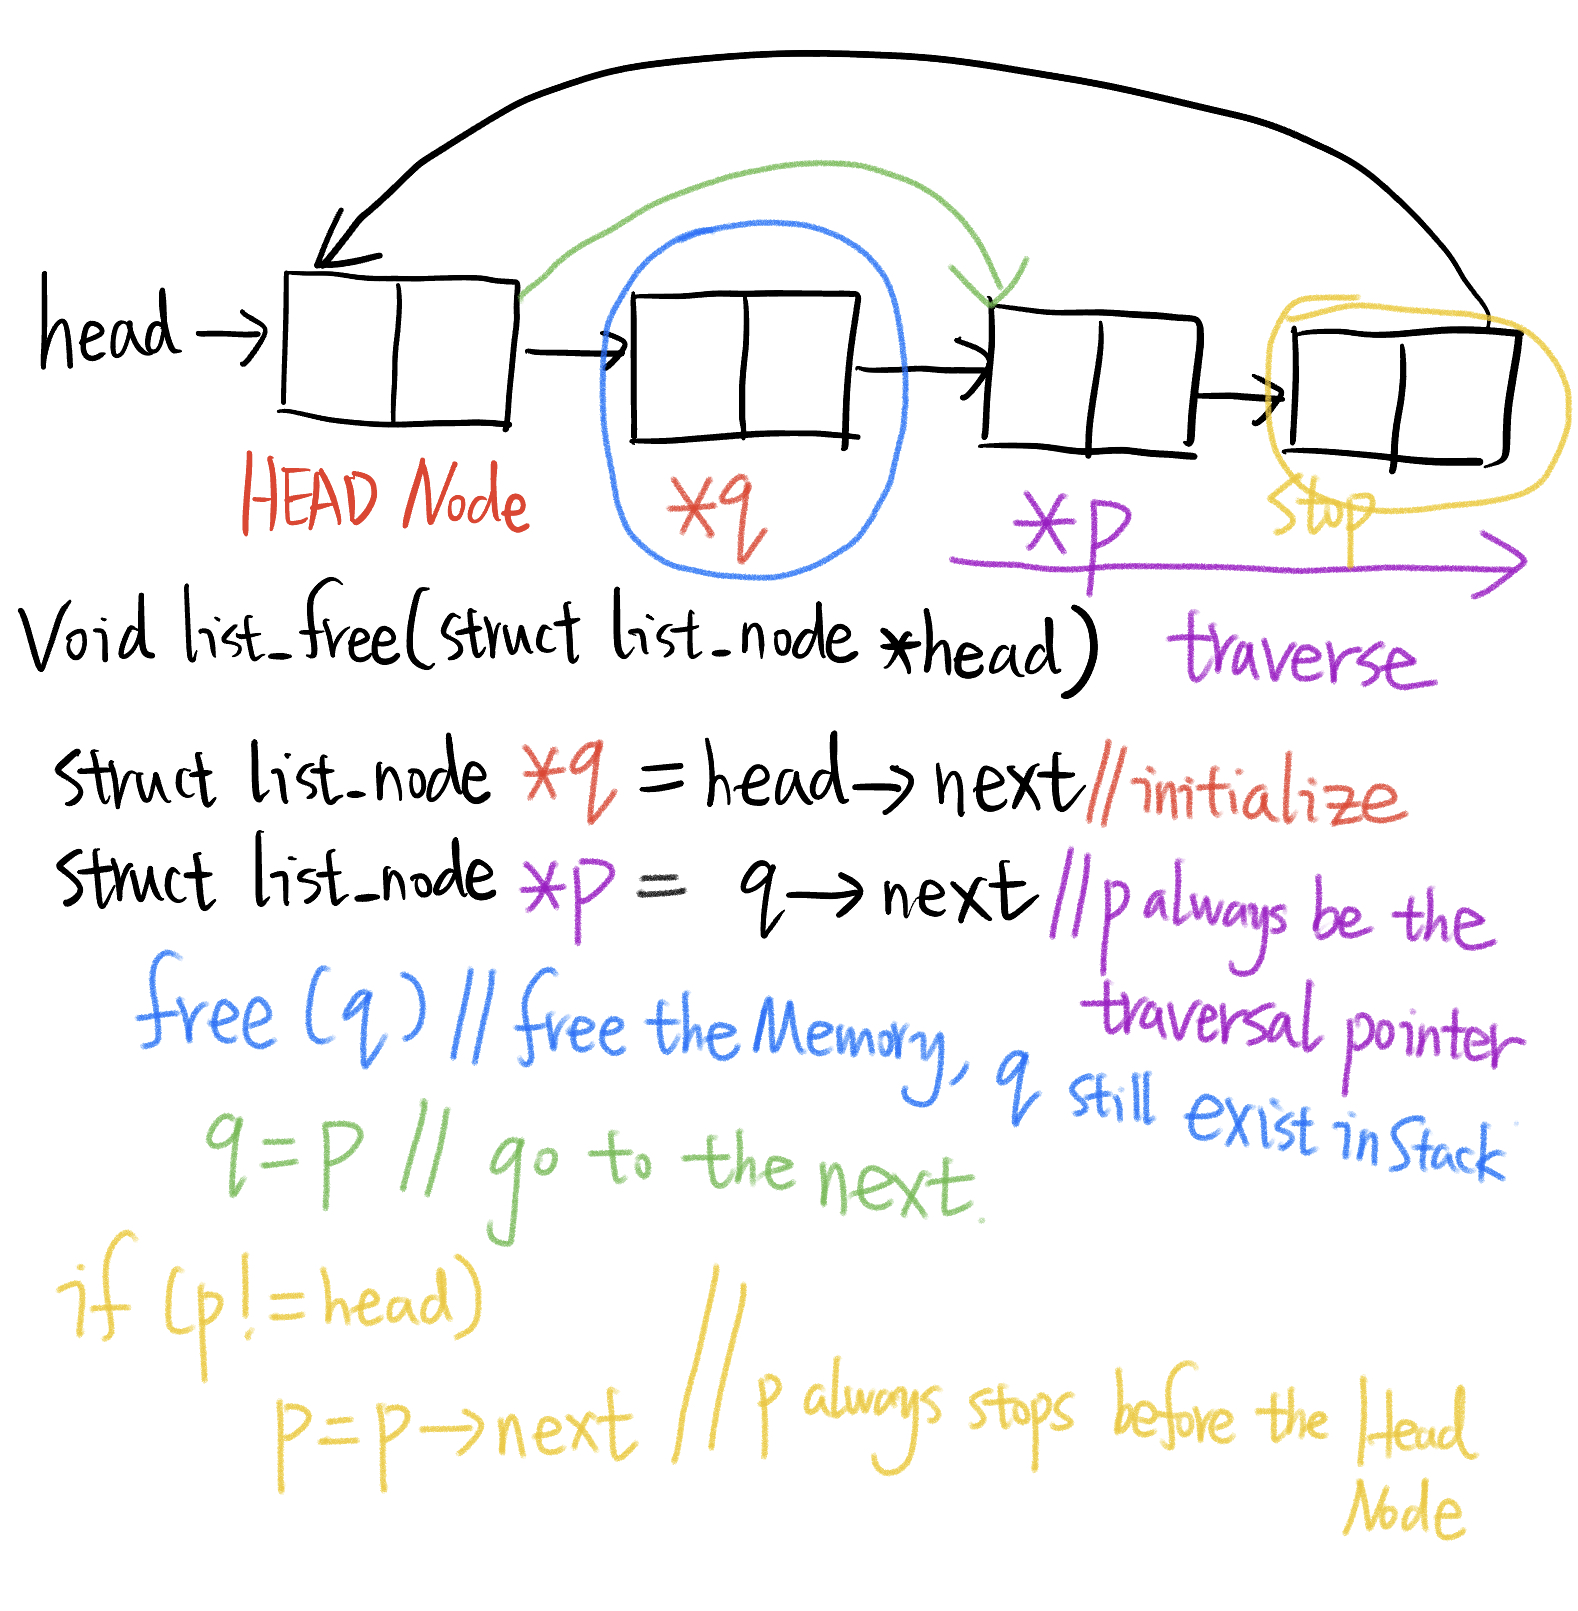 head →
HEAD Node
*q
*p
stop
Void list_free(struct list_node *head)
traverse
struct list_node *q = head→next //initialize
struct list_node *p = q→next //p always be the
traversal pointer
free (q) // free the Memory, q still exist in Stack
q=p // go to the next.
if (p!=head)
p=p→next // p always stops before the Head
Node